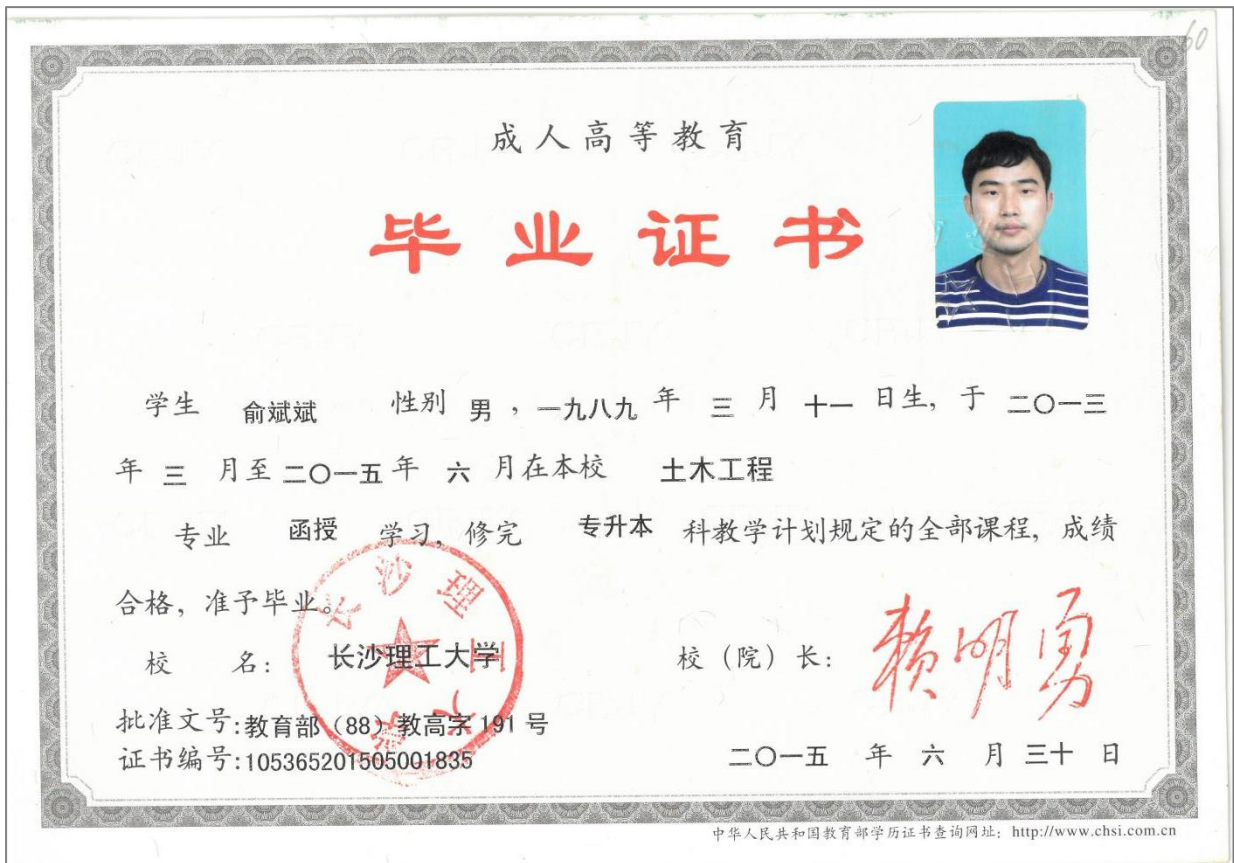 60
成人高等教育
毕业证书
学生 俞斌斌 性别 男,一九八九 年 三 月 十一 日生,于 二〇一三
年 三 月至 二〇一五 年 六 月在本校 土木工程
专业 函授 学习,修完 专升本 科教学计划规定的全部课程,成绩
合格,准予毕业。
校 名: 长沙理工大学 校(院)长: 赖明勇
长沙理工大学
批准文号:教育部(88)教高字 191 号
证书编号:105365201505001835 二〇一五 年 六 月 三十 日
中华人民共和国教育部学历证书查询网址:http://www.chsi.com.cn